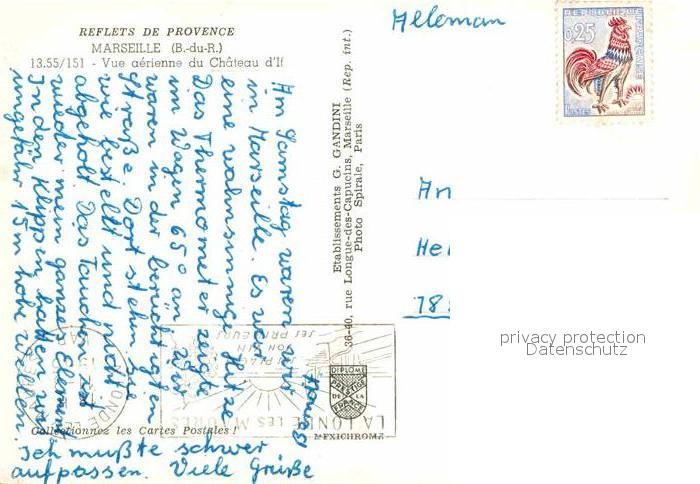 REFLETS DE PROVENCE
MARSEILLE (B.-du-R.)
13.55/151 - Vue aérienne du Château d'If
Am Samstag waren wir
in Marseille. Es war
eine wahnsinnige Hitze.
Das Thermometer zeigte
im Wagen 65° an. Wir
waren in der berüchtigten
Straße. Dort stehen sie
wie bestellt und nicht
abgeholt. Das Tauchen ist
wieder mein ganzes Element
In den Klippen hatten wir
ungefähr 15 m hohe Wellen.
Ich mußte schwer
aufpassen. Viele Grüße
Collectionnez les Cartes Postales !
Etablissements G. GANDINI
36-40, rue Longue-des-Capucins, Marseille (Rep. int.)
Photo Spirale, Paris
MEXICHROME
DIPLOME
PRESTIGE
DE LA
FRANCE
LA LONDE LES MAURES
SA PLAGE
SON VIN
SES PRIMEURS
Alleman
0,25
An
He
78
privacy protection
Datenschutz